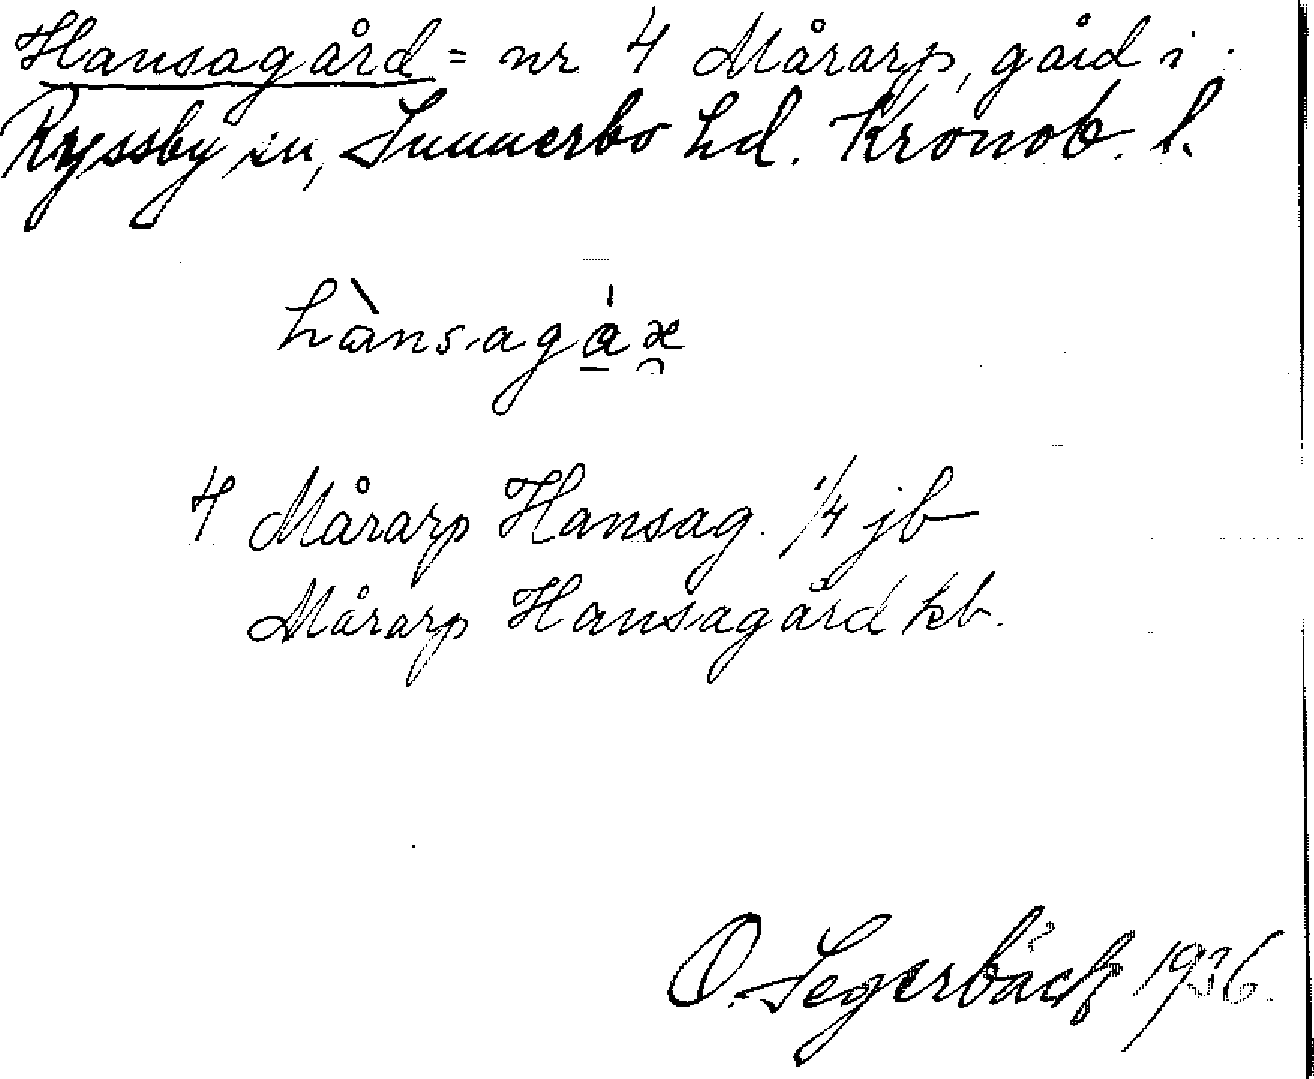 Hansagård = nr 4 Mårarp, gård i
Ryssby sn, Sunnerbo hd. Kronob. l.
hànsagàæ
4 Mårarp Hansag. 1/4 jb
Mårarp Hansagård kb.
O. Segerbäck 1936